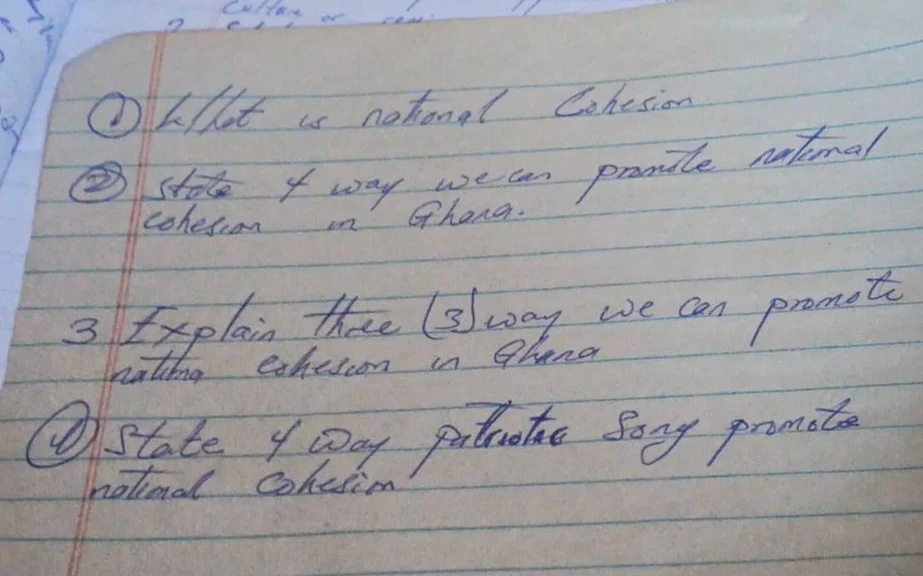 ① What is national Cohesion
② State 4 way we can promote national
cohesion in Ghana.
3 Explain three (3) way we can promote
natina cohesion in Ghana
④ State 4 way patriotic Song promote
national Cohesion